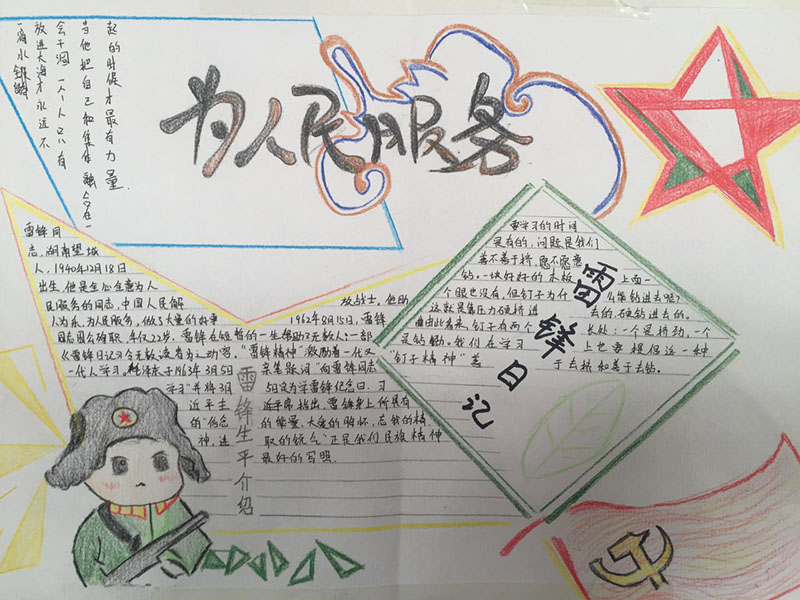 一滴水
放进大海才永远不
会干涸一个人只有
当他把自己和集体融合在一
起的时候才最有力量
为人民服务
雷锋同
志,湖南望城
人,1940年12月18日
出生,他是全心全意为人
民服务的同志,中国人民解 放战士,他助
人为乐,为人民服务,做了大量的好事 1962年8月15日,雷锋
同志因公殉职,年仅22岁。雷锋在短暂的一生帮助了无数人;一部
《雷锋日记》令无数读者为之动容,"雷锋精神"激励着一代又
一代人学习。毛泽东于1963年3月5日 亲笔题词"向雷锋同志
学习"并将3月 5日定为学雷锋纪念日。习
近平主 席指出,雷锋身上所具有
的"信念 的能量、大爱的胸怀,忘我的精
神,进 取的锐气"正是我们民族精神
最好的写照.
雷锋生平介绍
要学习的时间
是有的,问题是我们
善不善于挤,愿不愿意
钻。一块好好的木板 上面一
个眼也没有,但钉子为什 么能钻进去呢?
这就是靠压力硬挤进 去的,硬钻进去的。
由此看来,钉子有两个 长处:一个是挤劲,一个
是钻劲。我们在学习 上也要提倡这一种
"钉子精神"善 于去挤和善于去钻。
雷锋日记